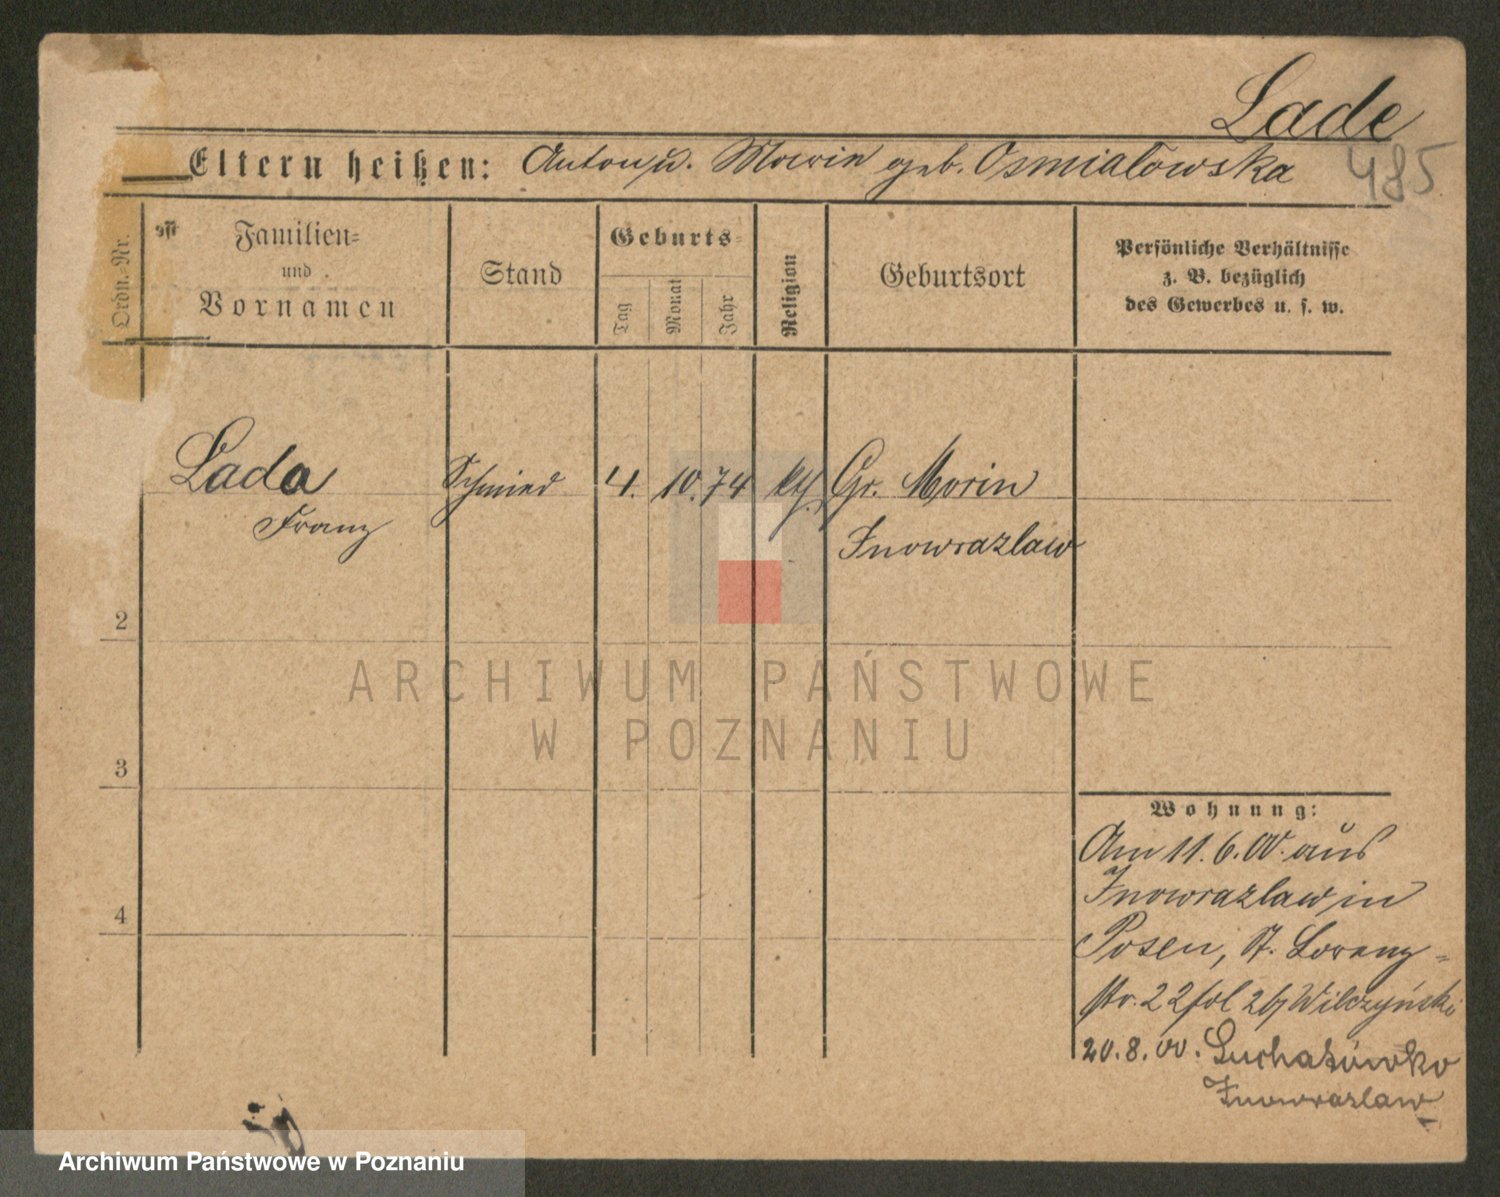 Lade
485
Eltern heißen: Anton u. Morin geb. Osmialowska
Ordn.-Nr.
Familien-
und
Vornamen
Stand
Geburts-
Tag
Monat
Jahr
Religion
Geburtsort
Persönliche Verhältnisse
z. B. bezüglich
des Gewerbes u. s. w.
Lada Schmied 4. 10. 74 kth. Gr. Morin
Franz Inowrazlaw
2
3
4
ARCHIWUM PAŃSTWOWE
W POZNANIU
Wohnung:
Am 11.6.00. aus
Inowrazlaw in
Posen, St. Lorenz-
str. 22 fol 26/ Wilczyński
20.8.00. Suchatówko
Inowrazlaw
Archiwum Państwowe w Poznaniu